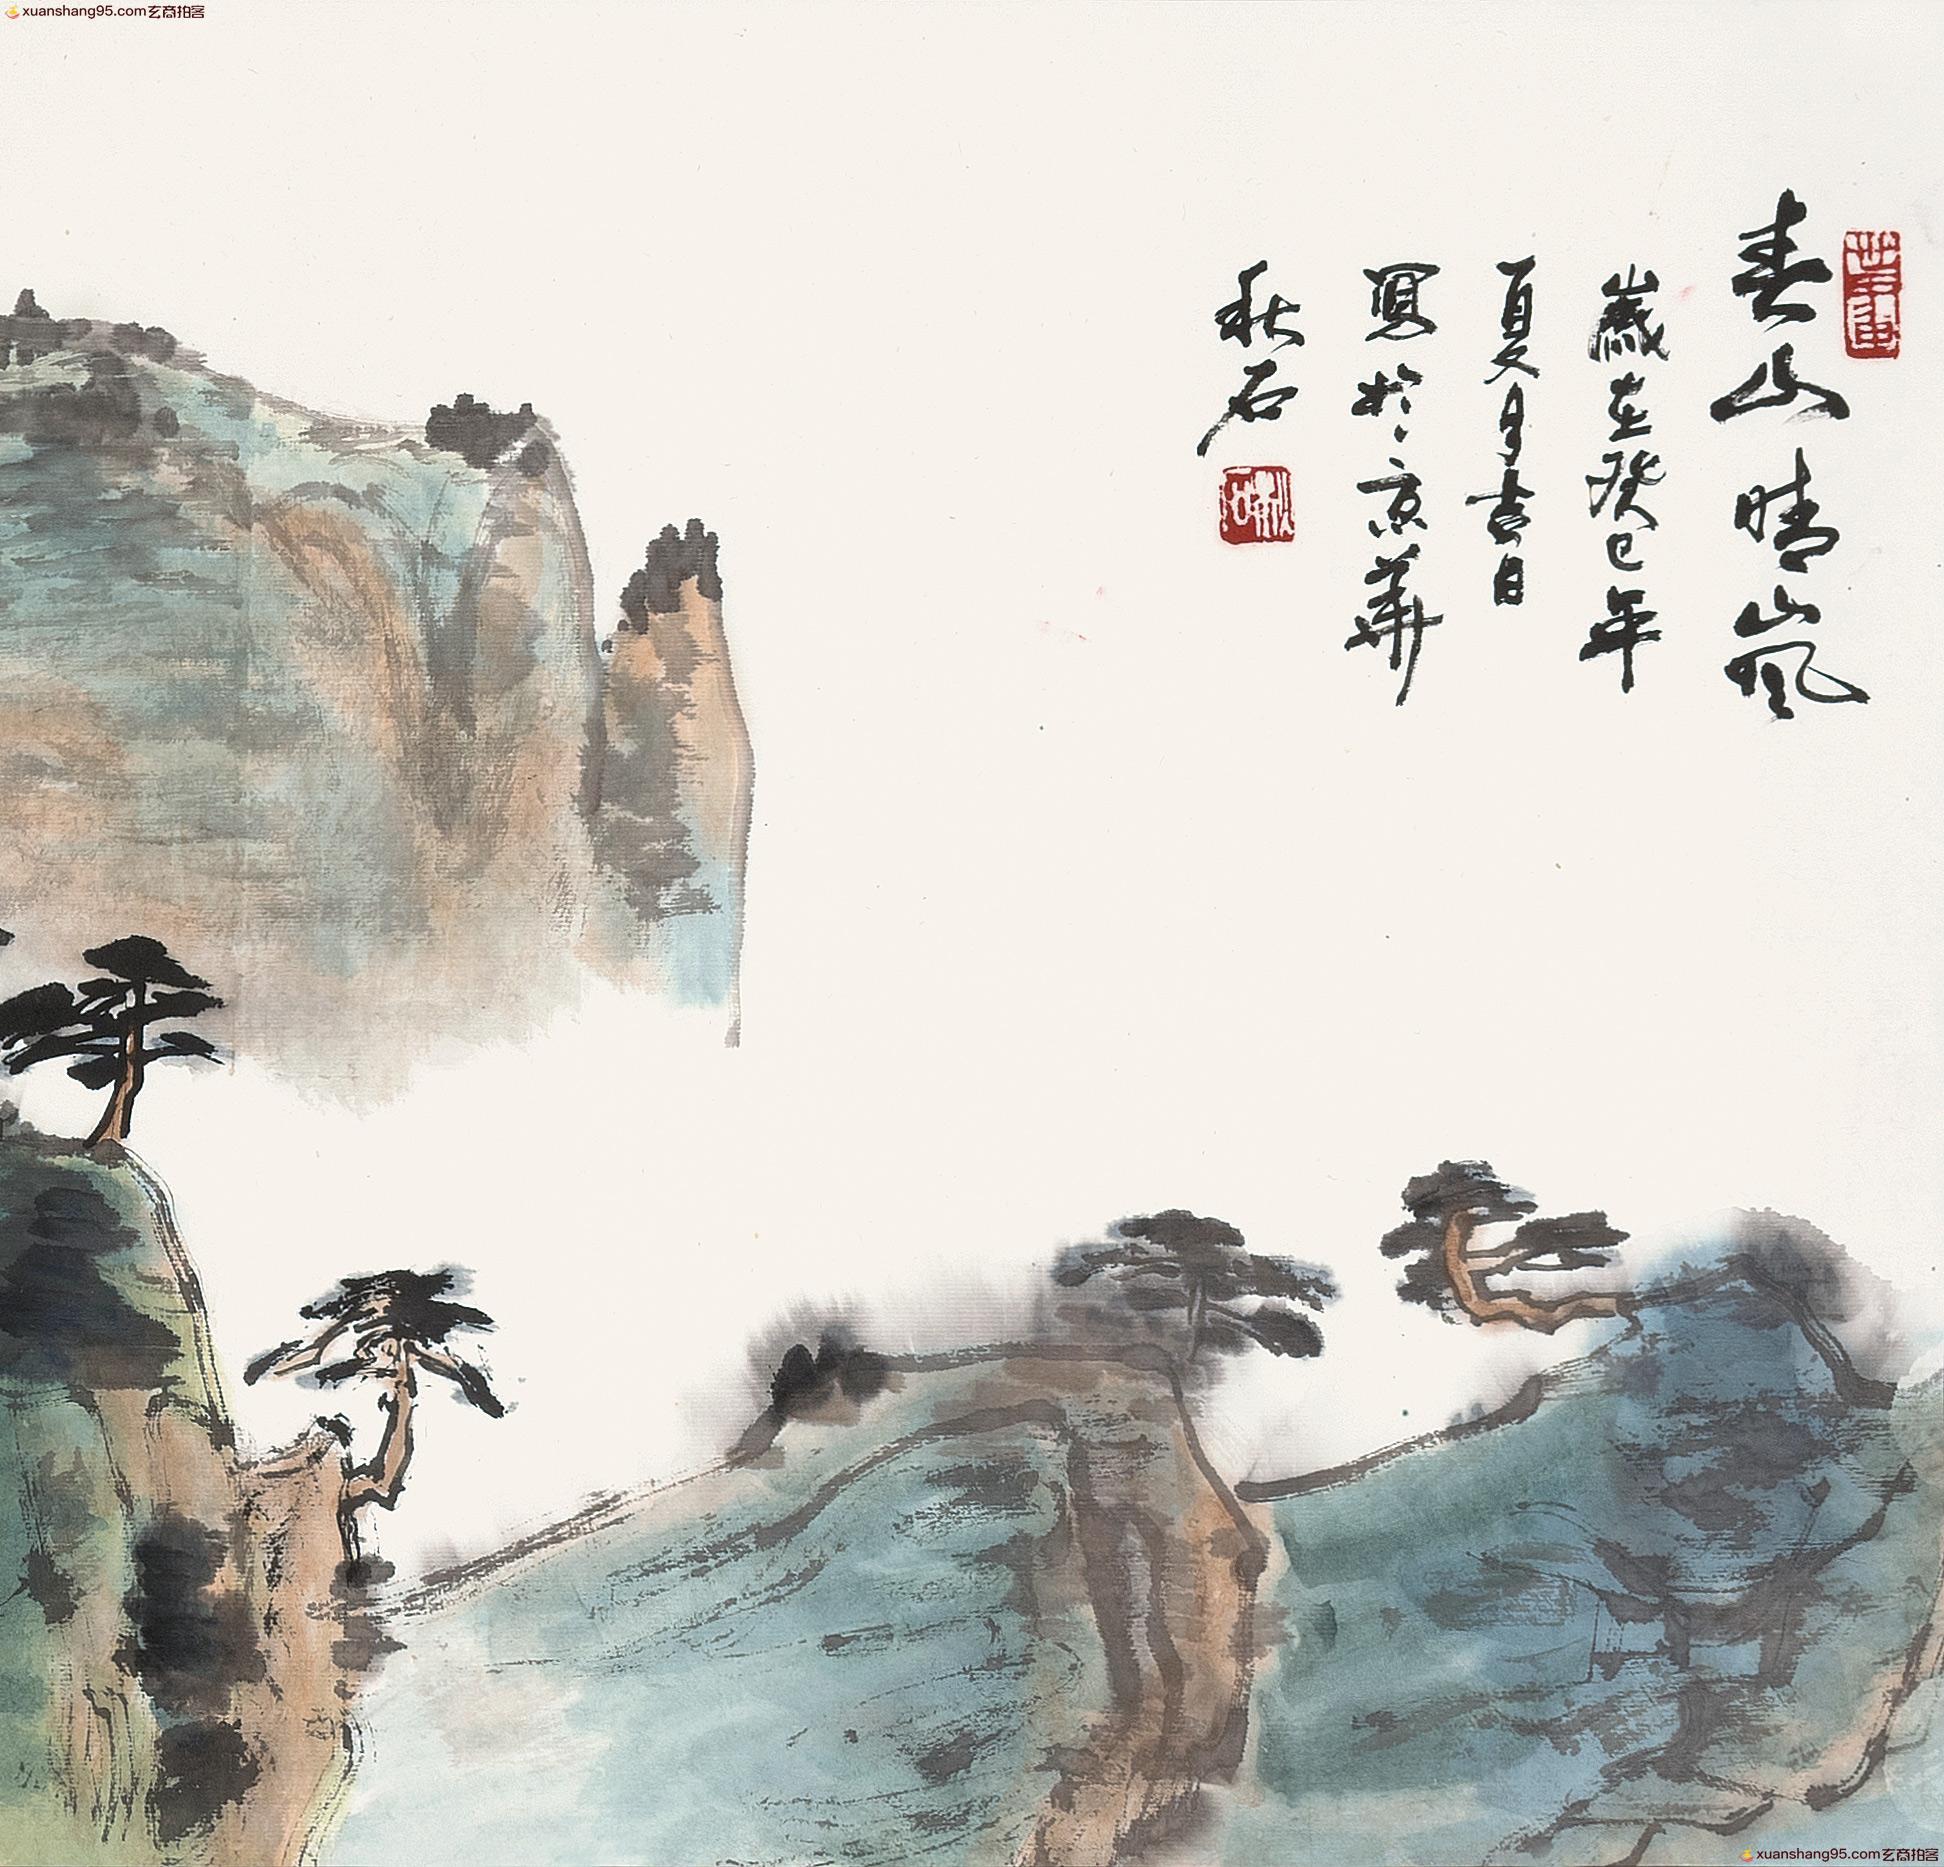 xuanshang95.com玄商拍客
春山晴嵐
歲在癸巳年
夏月吉日
寫於京華
秋石
秋石
xuanshang95.com玄商拍客